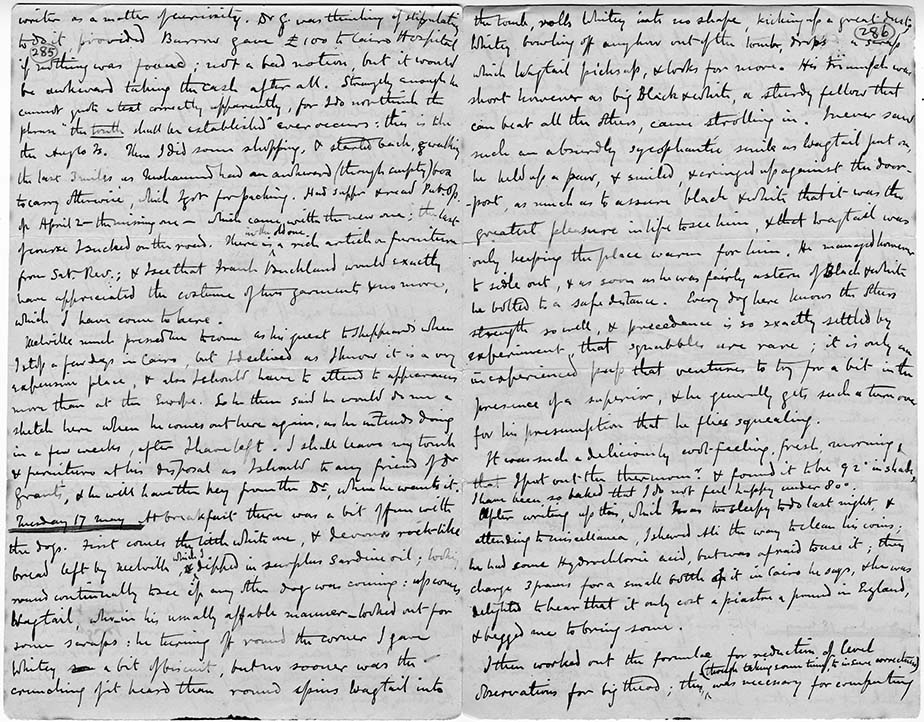 writer as a matter of curiosity. Dr G. was thinking of stipulating
to do it, provided Barrow gave £100 to Cairo Hospital
(285)
if nothing was found; not a bad notion, but it would
be awkward taking the cash after all. Strangely enough he
cannot quote a text correctly apparently, for I do not think the
phrase "the truth shall be established" ever occurs: this is the
Then I did some shopping, & started back, walking
the last 3 miles as Muhammed had an awkward (though empty) box
to carry otherwise, which I got for packing. Had supper & read
of April 2 – the missing one – which came with the new one; the last
of course I sucked on the road. There is in the old one, a rich article on furniture
from Sat. Rev.; & I see that Frank Buckland would exactly
have appreciated the costume of two garments & no more,
which I have come to here.
Melville much pressed me to come as his guest to Shepheards when
I stop a few days in Cairo, but I declined as I know it is a very
expensive place, & also I should have to attend to appearances
more than at the Europe. So he then said he would do me a
sketch here when he comes out here again, as he intends doing
in a few weeks, after I have left. I shall leave my trunk
& furniture at his disposal as I should to any friend of Dr
Grants, & he will have the key from the Dr, when he wants it.
Tuesday 17 May At breakfast there was a bit of fun with
the dogs. First comes the little white one, & devours rock-like
bread left by Melville which I dipped in surplus sardine oil; looking
round continually to see if any other dog was coming: up comes
Wagtail, who in his usually affable manner looked out for
some scraps: he turning off round the corner I gave
Whitey a bit of biscuit, but no sooner was the
crunching of it heard than round spins Wagtail into
the tomb, rolls Whitey into no shape, kicking up a great dust,
(286)
Whitey bowling off anyhow out of the tomb, drops a scrap
which Wagtail picks up, & looks for more. His triumph was
short however as big Black & white, a sturdy fellow that
can beat all the others, came strolling in. I never saw
such an absurdly sycophantic smile as Wagtail put on,
he held up a paw, & smiled, & cringed up against the door-
post, as much as to assure black & white that it was the
greatest pleasure in life to see him, & that Wagtail was
only keeping the place warm for him. He managed however
to sidle out, & as soon as he was fairly astern of Black & white
he bolted to a safe distance. Every dog here knows the others
strength so well, & precedence is so exactly settled by
experiment, that squabbles are rare; it is only an
inexperienced pup that ventures to try for a bit in the
presence of a superior, & he generally gets such a turn over
for his presumption that he flies squealing.
It was such a deliciously cool-feeling, fresh, morning,
that I put out the thermomr. & found it to be 92° in shade,
I have been so baked that I do not feel happy under 80°.
After writing up this, which I was too sleepy to do last night, &
attending to miscellanea, I shewed Ali the way to clean his coins;
he had some Hydrochloric acid, but was afraid to use it; they
charge 3 francs for a small bottle of it in Cairo he says, & he was
delighted to hear that it only cost a piastre a pound in England,
& begged me to bring some.
I then worked out the formulae for reduction of level
observations for big theod; this, (though taking some time, to insure correctness) was necessary for computing